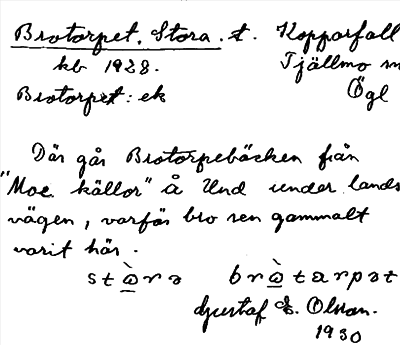 Brotorpet, Stora. t. Kopparfall
kb 1928. Tjällmo
Brotorpet: ek Ögl
Där går Brotorpebäcken från
"Moe källor" å Und under lands
vägen, varför bro sen gammalt
varit här.
stὼ̲rə brὼ̲tarpət
Gustaf E. Olsson.
1930